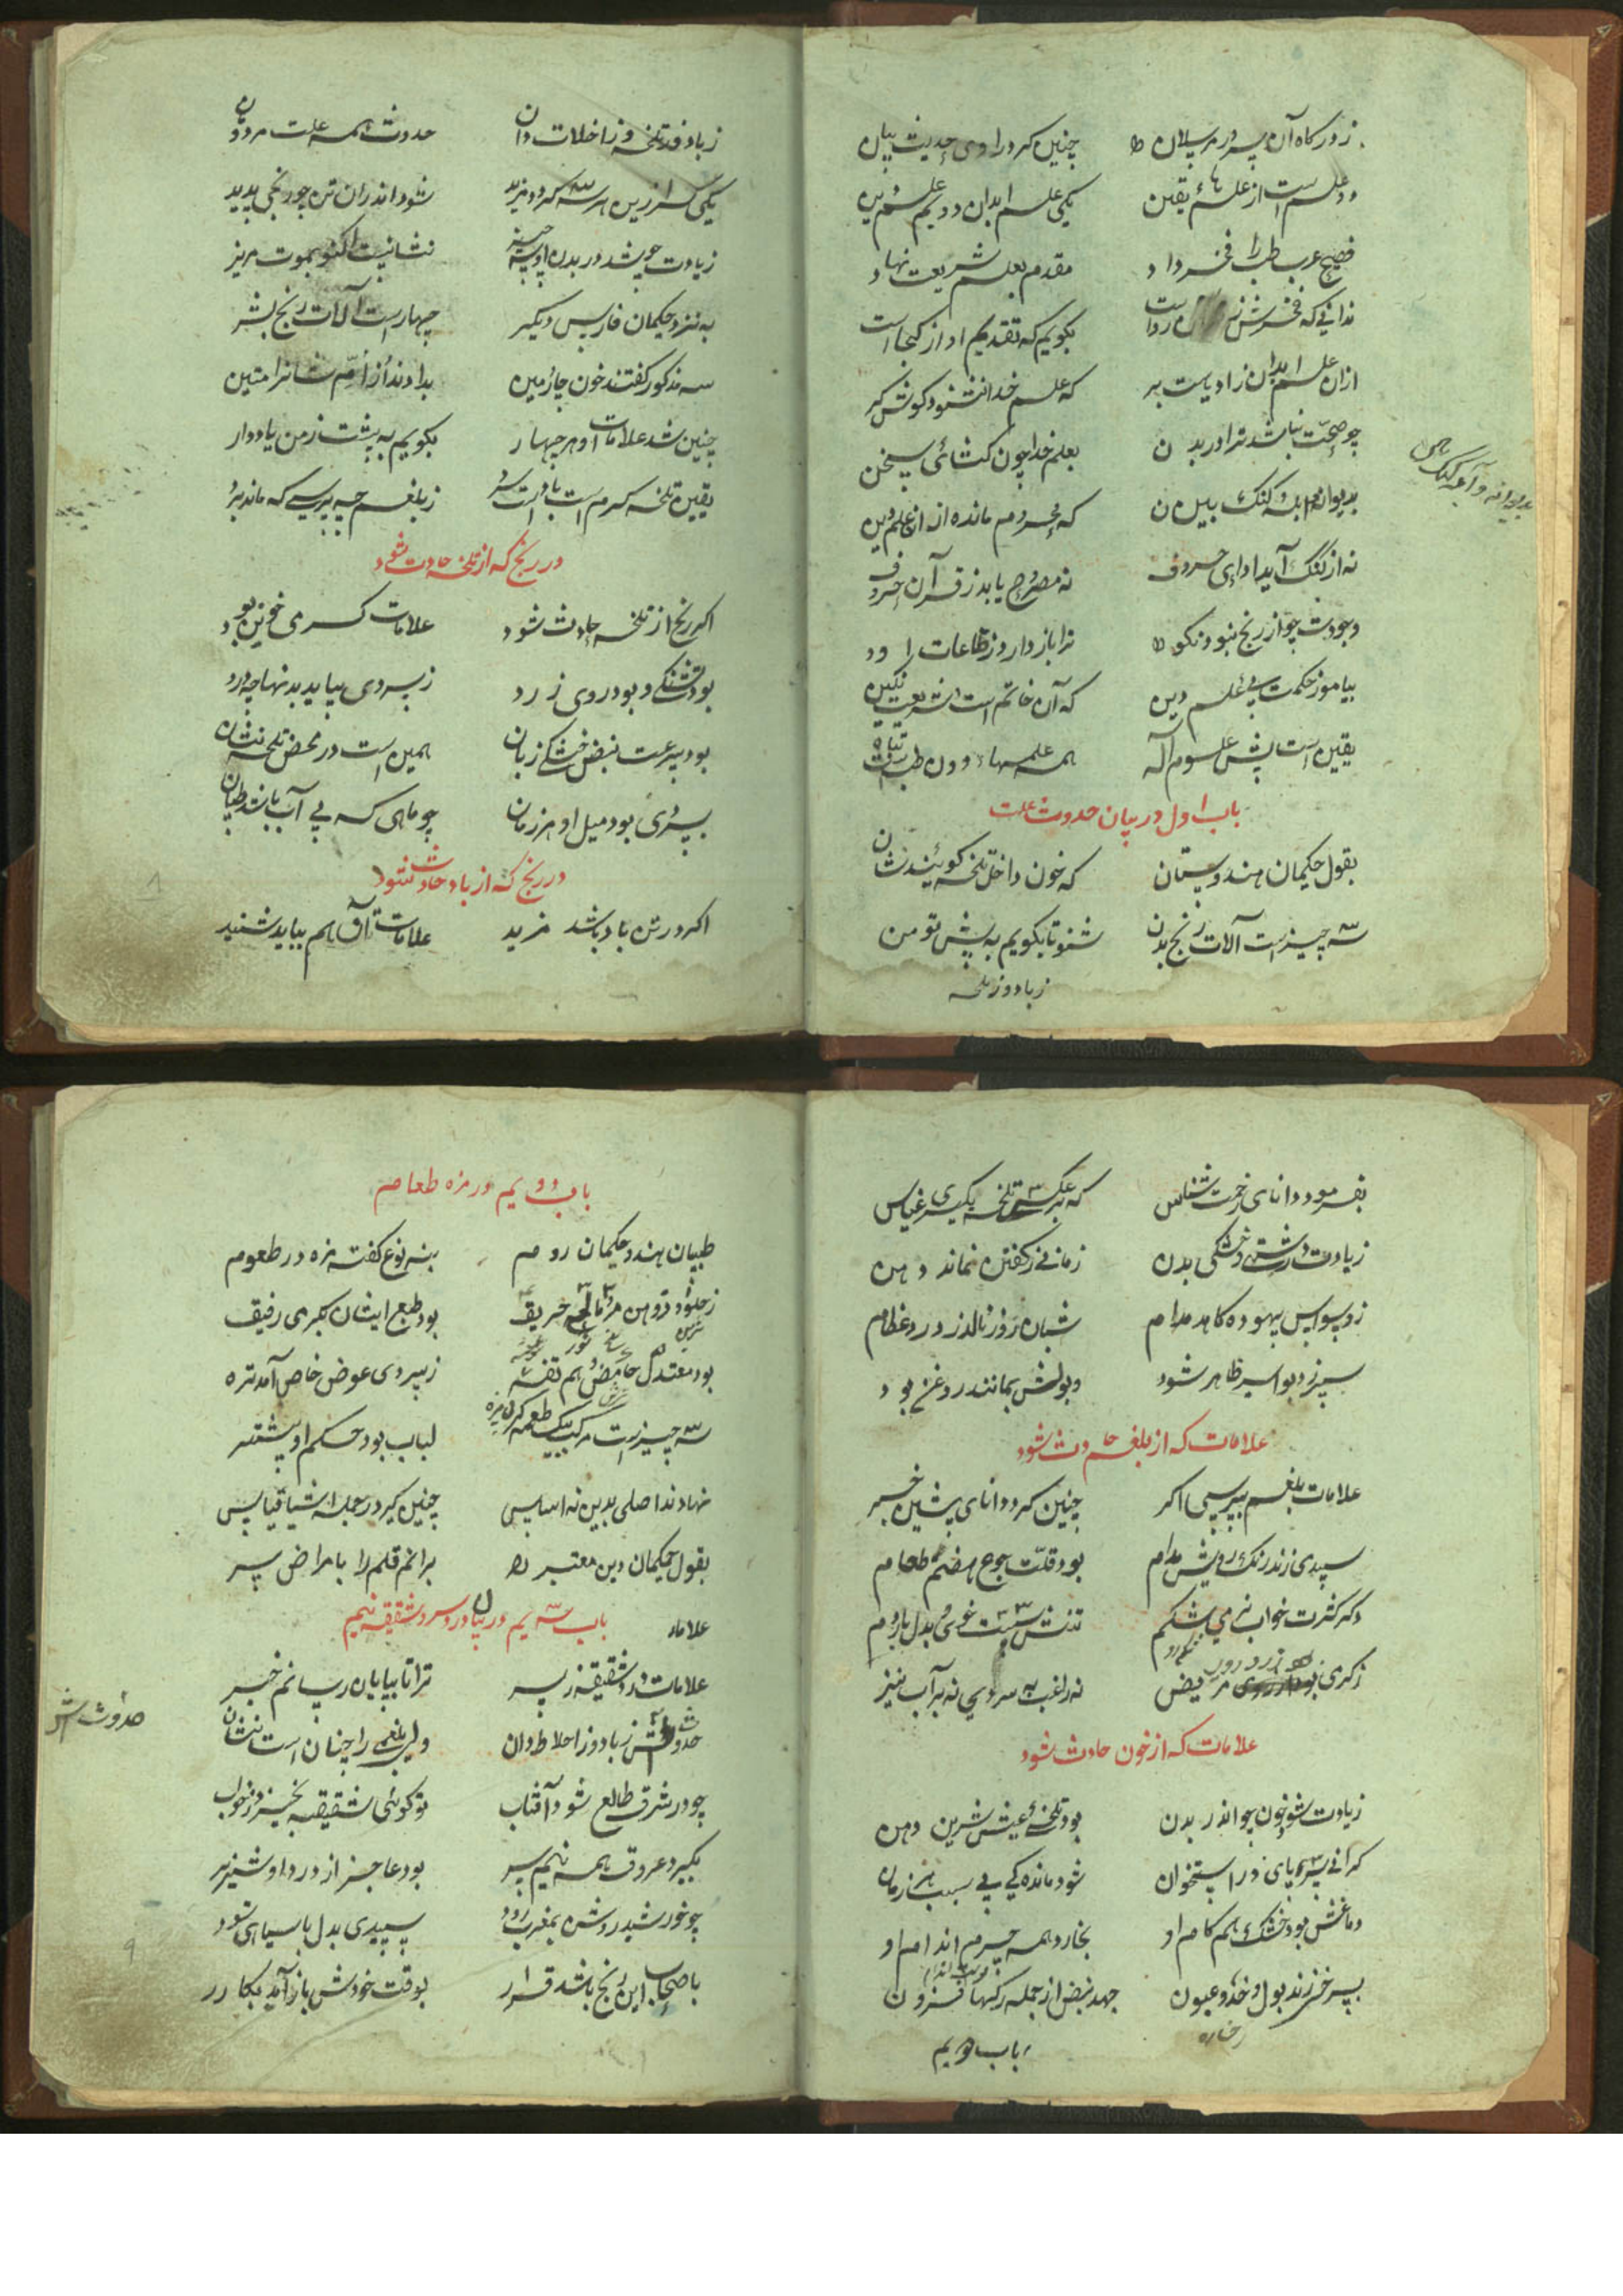 ز درگاه آن سرور مرسلان چنین کرد راوی حدیث بیان
دو علم است از علمهائ یقین یکی علم ابدان دویم علم دین
فصیح عرب طب را فخر داد مقدم بعلم شریعت نهاد
ندانی که فخرش رواست بگویم که تقدیم او از کجا است
ازان علم ابدان زادیست بر که علم خدا نشنود گوش کر
چو صحّت نباشد ترا در بدن بعلم خدا چون کشائی سخن
بدیوانه و ابله و کنک بین که محروم مانده از علم دین
نه از کنگ آید ادای حروف نه مصروع یابد ز قرآن حروف
وجودت چو از رنج نبود نکو ترا باز دارد ز طاعات او
بیاموز حکمت پی علم دین که آن خاتم است شریعت نگین
یقین است پیش علوم اله همه علمها دون طب تباه
باب اول در بیان حدوث علت
بقول حکیمان هندوستان که خون داخل تلخه گویند نشان
سه چیز است آلات رنج بدن شنو تا بگویم به پیش تو من
ز باد و ز تلخه
بدیوانه و آنچه کنک
ز باد و ز تلخه و ز اخلاط دان حدوث همه علت مردمان
یکی گر ازین هر سه گردد مزید شود اندران تن چو رنجی پدید
زیادت چو شد در بدن این سه چیز نشانیست اکنو بموت مریز
به نزد حکیمان فارس دیگر چهار است آلات رنج بشر
سه مذکور گفتند خون چارمین
چنین شد علامات او هر چهار بگویم به پیشت ز من یاد دار
یقین تلخه گرم است باد است سرد ز بلغم چه پرسی که ماند بدو
در رنج که از تلخه حادث شود
اگر رنج از تلخه حادث شود علامات گرمی خونین بود
بود تشنکی و بود روی زرد ز سردی بیابد بدنها چه درد
بود سرعت نبض خشکی زبان همین است در محض تلخه نشان
بسردی بود میل او هر زمان چو ماهی که بی آب باشد طپان
در رنج که از باد حادث شود
اگر در تن باد باشد مزید علامات آن هم بباید شنید
بفرمود دانای حرمت شناس که بر عکس تلخه بگیری قیاس
زیادت درشتی و خشکی بدن زمانی ز گفتن نماند دهن
ز وسواس بیهوده کاهد مدام شبان روز نالد ز درد عظام
سپرز و بواسیر ظاهر شود و بولش بمانند روغن بود
علامات که از بلغم حادث شود
علامات بلغم بپرسی اگر چنین کرد دانای پیشین خبر
سپیدی زند رنک رویش مدام بود قلّت جوع هضم طعام
دگر کثرت خواب نرمی شکم تنش سست خوی بدل با ورم
ز گرمی مریض نه راغب به سردی نه بر آب نیز
علامات که از خون حادث شود
زیادت شود خون چو اندر بدن بود تلخئ عیش شرین دهن
گرانی سر و پای در استخوان شود مانده گی بی سبب هر زمان
دماغش بود خشک هم کام او بخارد همه جرم اندام او
بسرخی زند بول و خدّ و عیون جهد نبض از جمله رگها فزون
رخساره
باب دویم
باب دویم در مزه طعام
طبیبان هند و حکیمان روم بنه نوع گفته مزه در طعوم
ز حلو و دو دهن مر و مالح حریق بود طبع ایشان بگرمی رفیق
بود معتدل حامض و هم تفه ز سردی عوض خاص آمد تره
سه چیز است مرکب بیک طعمه لبالب بود حکم او بیشتر
نهادند اصلی بدین نه اساس چنین گیر در جمله اشیا قیاس
بقول حکیمان دین معتبر برانم قلم را بامراض سر
باب سه یم در بیان درد سر و شقیقه نیم
علامات
علامات درد شقیقه ز سر ترا تا بپایان رسانم خبر
حدوثش ز باد و ز اخلاط دان ولی بلغمی را چنان است نشان
چو در شرق طالع شود آفتاب تو گوئی شقیقه بخیزد ز خواب
بگیرد عروق همه نیم سر بود عاجز از درد او شیر نر
چو خورشید روشن بمغرب رود سپیدی بدل با سیاهی شود
باصحاب این رنج باشد قرار بوقت خودش باز آمد بکار
حدوث اش